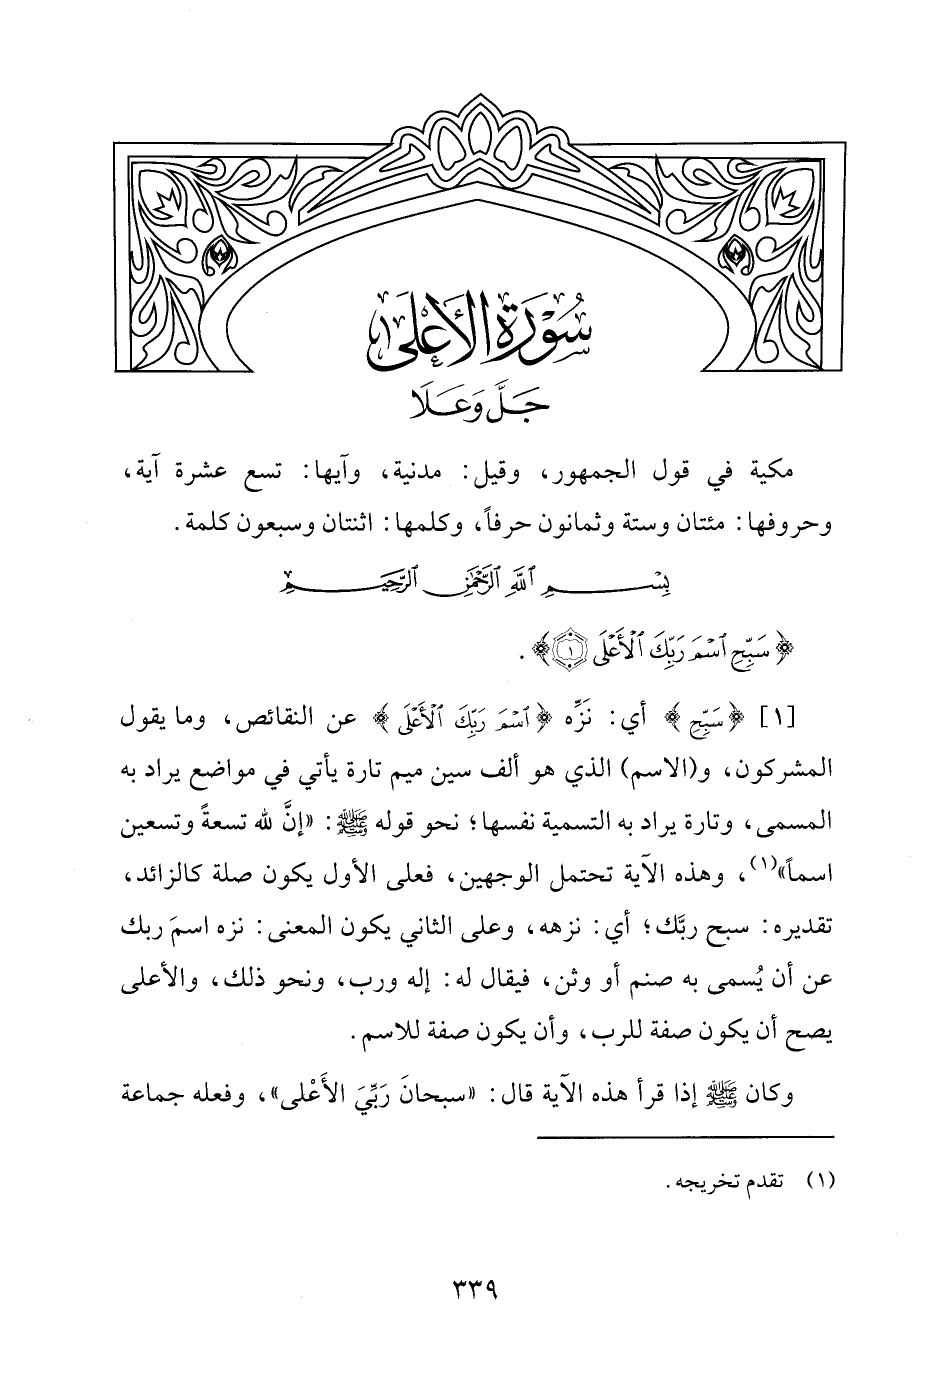 سُورَةُ الأَعْلَى
جَلَّ وَعَلَا
مكية في قول الجمهور، وقيل: مدنية، وآيها: تسع عشرة آية،
وحروفها: مئتان وستة وثمانون حرفاً، وكلمها: اثنتان وسبعون كلمة.
بِسْمِ ٱللَّهِ ٱلرَّحْمَٰنِ ٱلرَّحِيمِ
﴿سَبِّحِ ٱسْمَ رَبِّكَ ٱلْأَعْلَى ۝١﴾.
[١] ﴿سَبِّحِ﴾ أي: نَزِّه ﴿ٱسْمَ رَبِّكَ ٱلْأَعْلَى﴾ عن النقائص، وما يقول
المشركون، و(الاسم) الذي هو ألف سين ميم تارة يأتي في مواضع يراد به
المسمى، وتارة يراد به التسمية نفسها؛ نحو قوله ﷺ: «إنَّ لله تسعةً وتسعين
اسماً»(١)، وهذه الآية تحتمل الوجهين، فعلى الأول يكون صلة كالزائد،
تقديره: سبح ربَّك؛ أي: نزهه، وعلى الثاني يكون المعنى: نزه اسمَ ربك
عن أن يُسمى به صنم أو وثن، فيقال له: إله ورب، ونحو ذلك، والأعلى
يصح أن يكون صفة للرب، وأن يكون صفة للاسم.
وكان ﷺ إذا قرأ هذه الآية قال: «سبحانَ رَبِّيَ الأَعْلى»، وفعله جماعة
(١) تقدم تخريجه.
٣٣٩